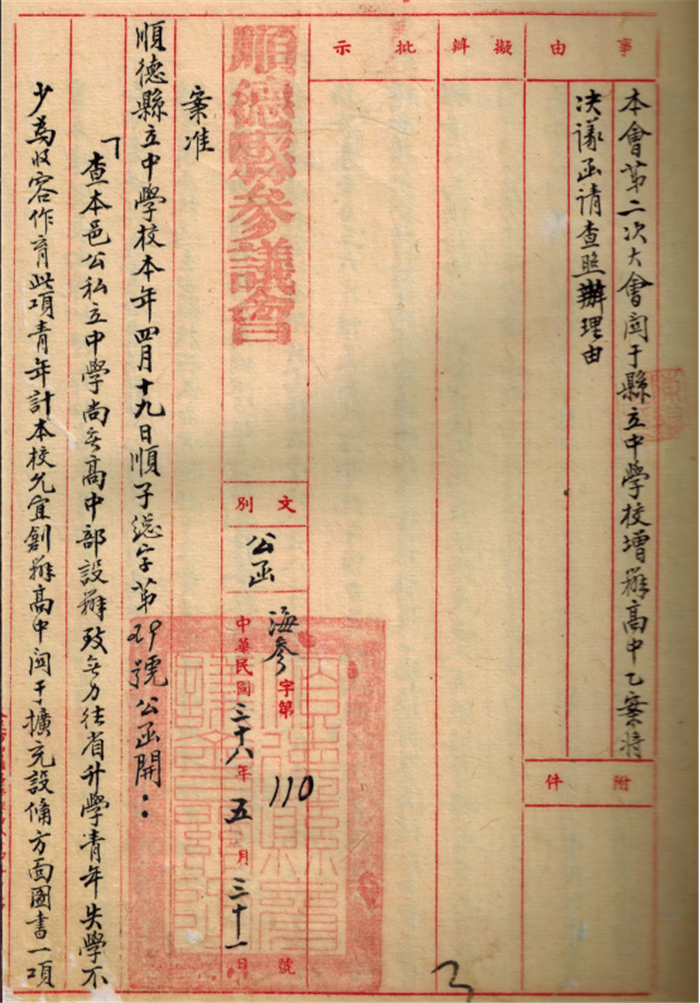 事由
本會第二次大會関于縣立中學校增辦高中乙案將
决議函請查照辦理由
附件
擬辦
批示
順德縣參議會
文別
公函
海參字第110號
中華民國三十八年五月三十一日
案准
順德縣立中學校本年四月十九日順子總字第29號公函開：
「查本邑公私立中學尚無高中部設辦致無力往省升學青年失學不
少為收容作育此項青年計本校允宜創辦高中関于擴充設備方面圖書一項